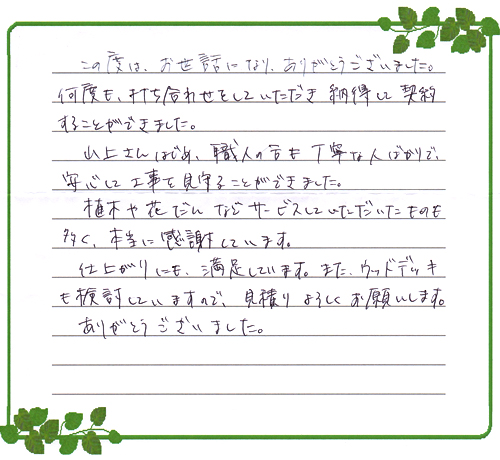 この度は、お世話になり、ありがとうございました。
何度も、打ち合わせをしていただき 納得して 契約
することができました。
山上さんはじめ、職人の方も 丁寧な人ばかりで、
安心して 工事を見守ることができました。
植木や花だんなどサービスしていただいたものも
多く、本当に感謝しています。
仕上がりにも、満足しています。また、ウッドデッキ
も検討していますので、見積り よろしくお願いします。
ありがとうございました。